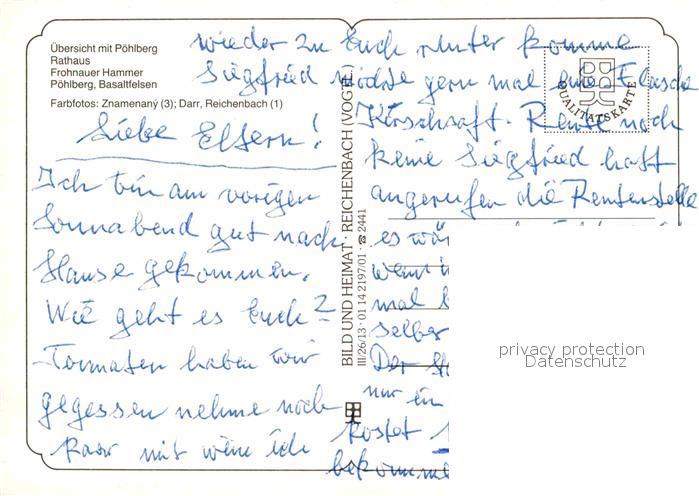 Übersicht mit Pöhlberg
Rathaus
Frohnauer Hammer
Pöhlberg, Basaltfelsen
Farbfotos: Znamenaný (3); Darr, Reichenbach (1)
Liebe Eltern!
Ich bin am vorigen
Sonnabend gut nach
Hause gekommen.
Wie geht es Euch?
Tormaten haben wir
gegessen nehme noch
paar mit wenn ich
wieder zu Euch runter komme
Siegfried möchte gern mal eine Flasche
Kirschsaft. Rente noch
keine Siegfried hatt
angerufen die Rentenstelle
es wär
wenn
mal
selber
Der
nur ein
kostet
bekomme
BILD UND HEIMAT · REICHENBACH (VOGTL
III/26/13 · 01 14 2197/01 · ☎ 2441
QUALITÄTSKARTE
privacy protection
Datenschutz